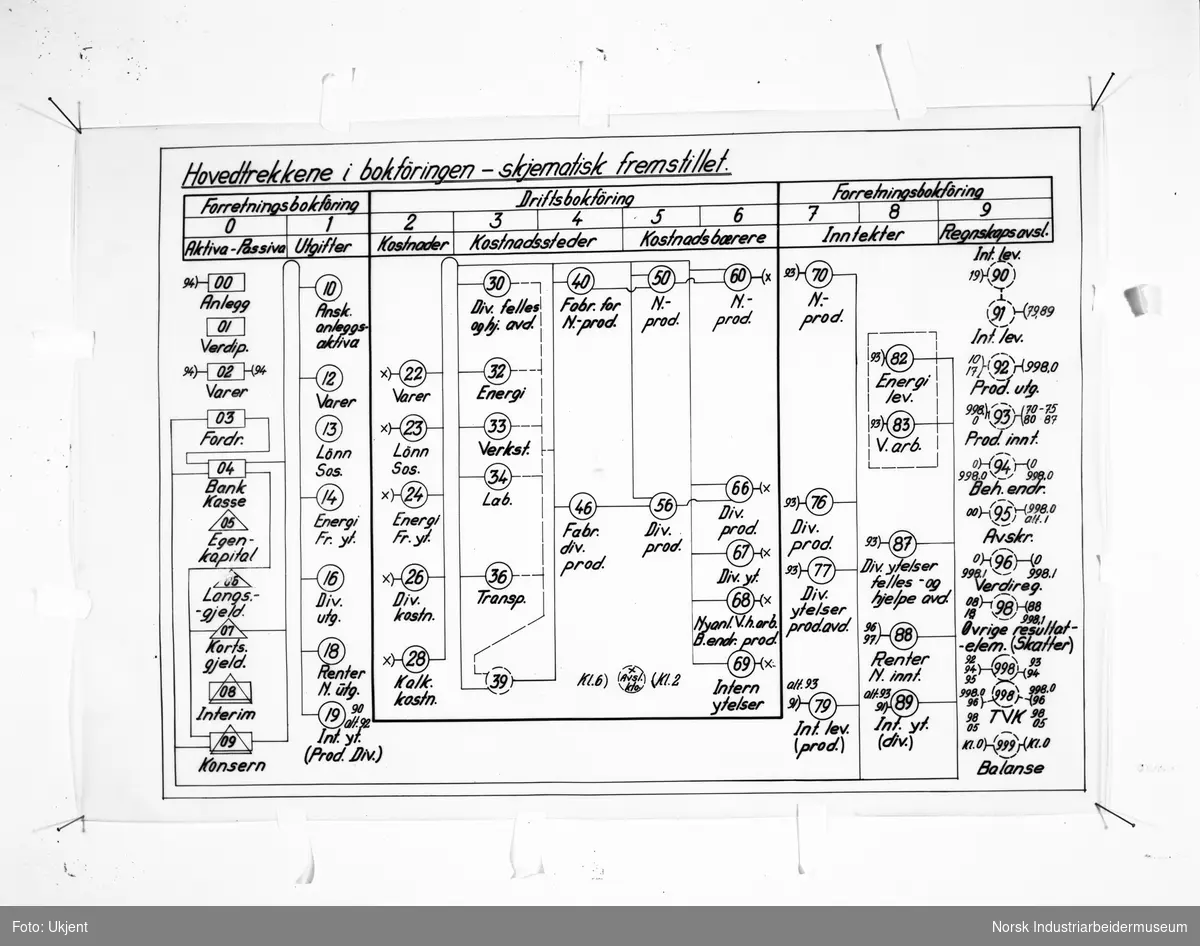 Hovedtrekkene i bokföringen – skjematisk fremstillet.
Forretningsbokföring
Driftsbokföring
Forretningsbokföring
0 1 2 3 4 5 6 7 8 9
Aktiva-Passiva Utgifter Kostnader Kostnadssteder Kostnadsbærere Inntekter Regnskapsavsl.
94) 00
Anlegg
01
Verdip.
94) 02 (94
Varer
03
Fordr.
04
Bank
Kasse
05
Egen-
kapital
06
Langs.-
-gjeld.
07
Korts.
gjeld.
08
Interim
09
Konsern
10
Ansk.
anleggs-
aktiva
12
Varer
13
Lönn
Sos.
14
Energi
Fr. yt.
16
Div.
utg.
18
Renter
N. utg.
19 90
alt.92
Int. yt.
(Prod. Div.)
x) 22
Varer
x) 23
Lönn
Sos.
x) 24
Energi
Fr. yt.
x) 26
Div.
kostn.
x) 28
Kalk.
kostn.
30
Div. felles
og hj. avd.
32
Energi
33
Verkst.
34
Lab.
36
Transp.
39
40
Fabr. for
N.-prod.
46
Fabr.
div.
prod.
Kl.6) x Avsl. kto (Kl.2
50
N.-
prod.
56
Div.
prod.
60 (x
N.-
prod.
66 (x
Div.
prod.
67 (x
Div. yt.
68 (x
Nyanl. V.h.arb.
B.endr. prod.
69 (x
Intern
ytelser
93) 70
N.-
prod.
93) 76
Div.
prod.
93) 77
Div.
ytelser
prod.avd.
alt.93
91) 79
Int. lev.
(prod.)
93) 82
Energi
lev.
93) 83
V. arb.
93) 87
Div. ytelser
felles - og
hjelpe avd.
96
97) 88
Renter
N. innt.
alt.93
91) 89
Int. yt.
(div.)
Int. lev.
19) 90
91 (79.89
Int. lev.
10
17) 92 (998.0
Prod. utg.
998.1
0 93 (70-75
80 87
Prod. innt.
0) 94 (0
998.0 998.0
Beh. endr.
00) 95 (998.0
alt.1
Avskr.
0) 96 (0
998.1 998.1
Verdireg.
08)
18 98 (88
998.1
Øvrige resultat-
-elem. (Skatter)
92
94
95 998 93
(94
998.0
96) 998 998.0
(96
98
05 TVK 98
05
Kl.0) 999 (Kl.0
Balanse
Foto: Ukjent
Norsk Industriarbeidermuseum